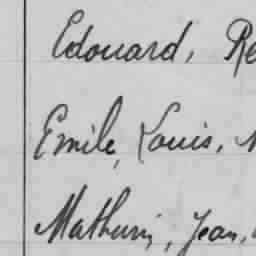 Edouard, Re
Emile, Louis,
Mathurin, Jean,